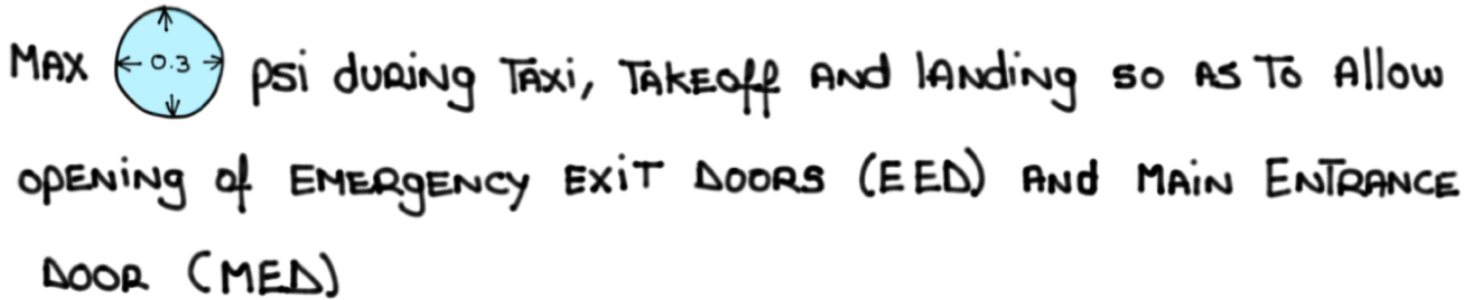 MAX 0.3 psi during Taxi, Takeoff and landing so as to Allow
opening of Emergency Exit Doors (EED) and Main Entrance
Door (MED)